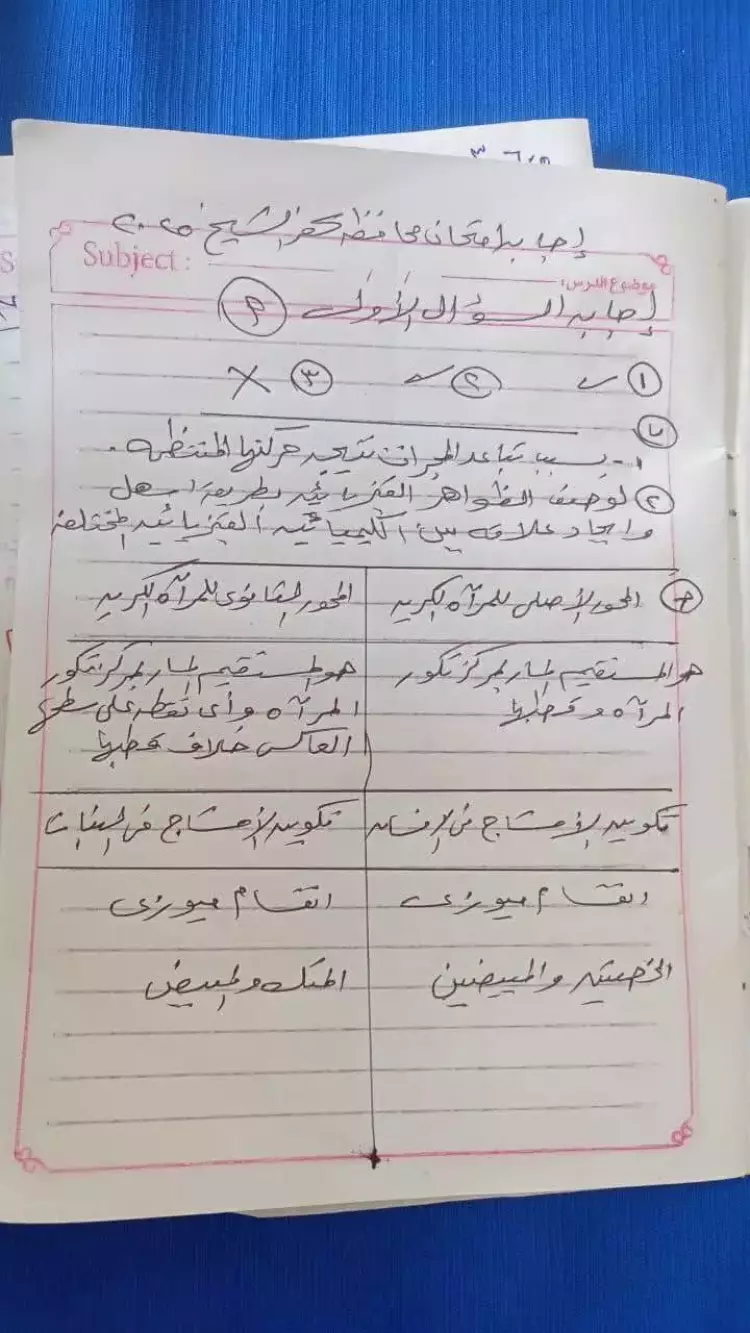 ٣ ٦ ٥
إجابة امتحان محافظة كفر الشيخ ٢٠٢٥
Subject:
موضوع الدرس:
إجابة السؤال الأول (٩)
١ ✓ ٢ ✓ ٣ ✗
ب
١- بسبب تباعد المجرات نتيجة حركتها المنتظمة.
٢ لوصف الظواهر الفيزيائية بطريقة أسهل
وإيجاد علاقة بين الكيميائية الفيزيائية المختلفة
ج المحور الأصلى للمرآة الكرية | المحور الثانوى للمرآة الكرية
هو المستقيم المار بمركز تكور | هو المستقيم المار بمركز تكور
المرآة وقطبها | المرآة وأى نقطة على سطحها
العاكس خلاف قطبها
تكوين الأمشاج فى الإنسان | تكوين الأمشاج فى النبات
انقسام ميوزى | انقسام ميوزى
الخصيتين والمبيضين | المتك والمبيض